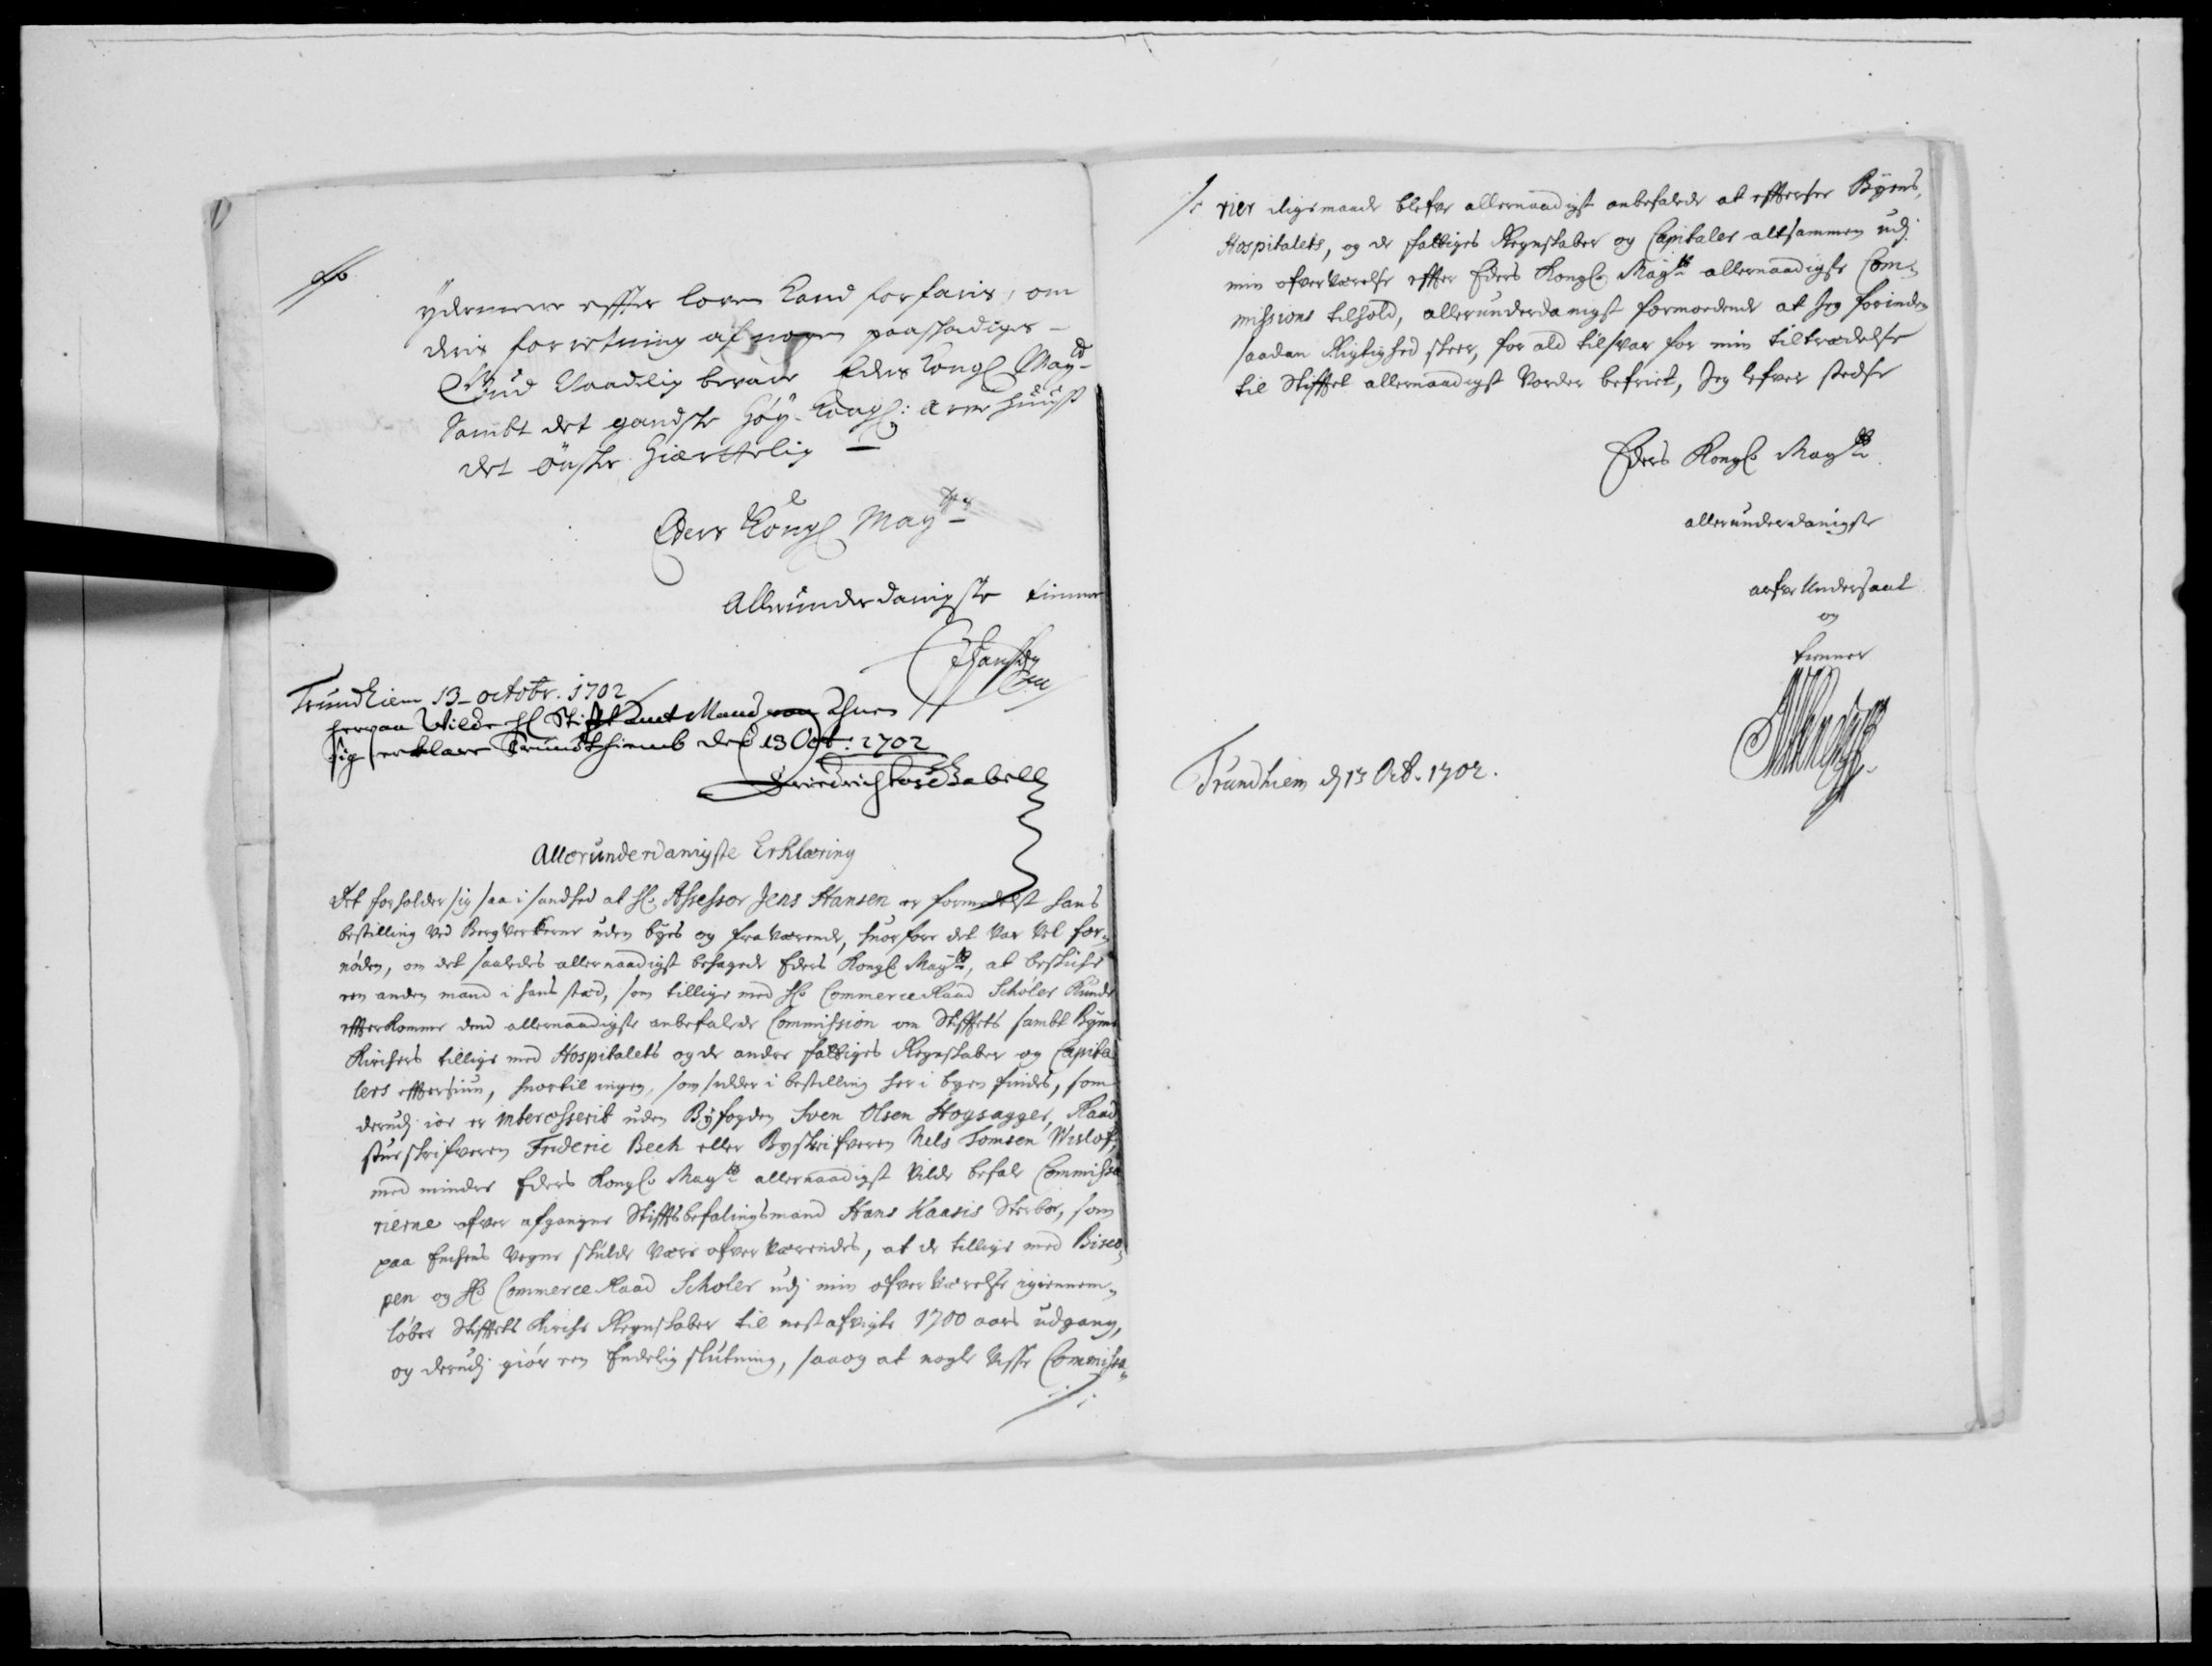 ydermeere effter loven kand forfaris, om
deris forretning af nogen paaskadiges
Gud Naadelig bevare Eders Kongl May
Sambt det gandske Høy-Kongl: Arve Huuss
det ønsker Hiertelig
Eders Kongl Mayts
Allerunderdanigste tienner
Trundhiem 13 octobr. 1702
Herpaa Wilde Hl Stiftsamt Mand
sig erklære Trundhiemb den 13 Oct: 1702
Allerunderdanigste Erklæring
Det forholder sig saa i sandhed at Hr Assessor Jens Hansen er formedelst hans
bestilling ved Bergverkerne uden byes og fraværende, huorfore det var vel for„
nøden, om det saaledes allernaadigst behagede Eders Kongl Mayts, at beskicke
een anden mand i hans sted, som tillige med Hr Commerce Raad Schøler kunde
effterkomme dend allernaadigste anbefalede Commission om Stifftets sambt Byens
Kirchers tillige med Hospitalets og de andre fattiges Regnskaber og Capita
lers effterseun, huortil ingen, som sidder i bestilling her i byen findes, som
derudj ioe er interesserit uden Byfogden Sven Olsen Hoysagger, Raad
stueskrifveren Frideric Bech eller Byskrifveren Nels Tomsen Wislof,
med minder Eders Kongl Mayts allernaadigst vilde befale Commissa
rierne ofver afgangne Stifftsbefalingsmand Hans Kaasis Sterboe, som
paa Enchens vegne skulde være ofverværendes, at de tillige med Bisco„
pen og Hr Commerce Raad Schøler udj min ofverværelse igiennem„
løber Stifftets Kirche Regnskaber til nestafvigte 1700 aars udgang,
og derudj giør een Endelig slutning, saa og at nogle visse Commissa„
rier ligemaade blefve allernaadigst anbefalede at efftersee Byens,
Hospitalets, og de fattiges Regnskaber og Capitaler altsammen udj
min ofverværelse effter Eders Kongl Mayts allernaadigste Com„
missions tilhold, allerunderdanigst formodende at Jeg forinden
saadan Rigtighed skeer, for ald tilsvar for min tiltrædelse
til Stifftet allernaadigst vorder befriet, Jeg lefver stedse
Eders Kongl Mayts
allerunderdanigste
arfve Undersaat
og
tienner
Trundhiem d 13 Oct. 1702.